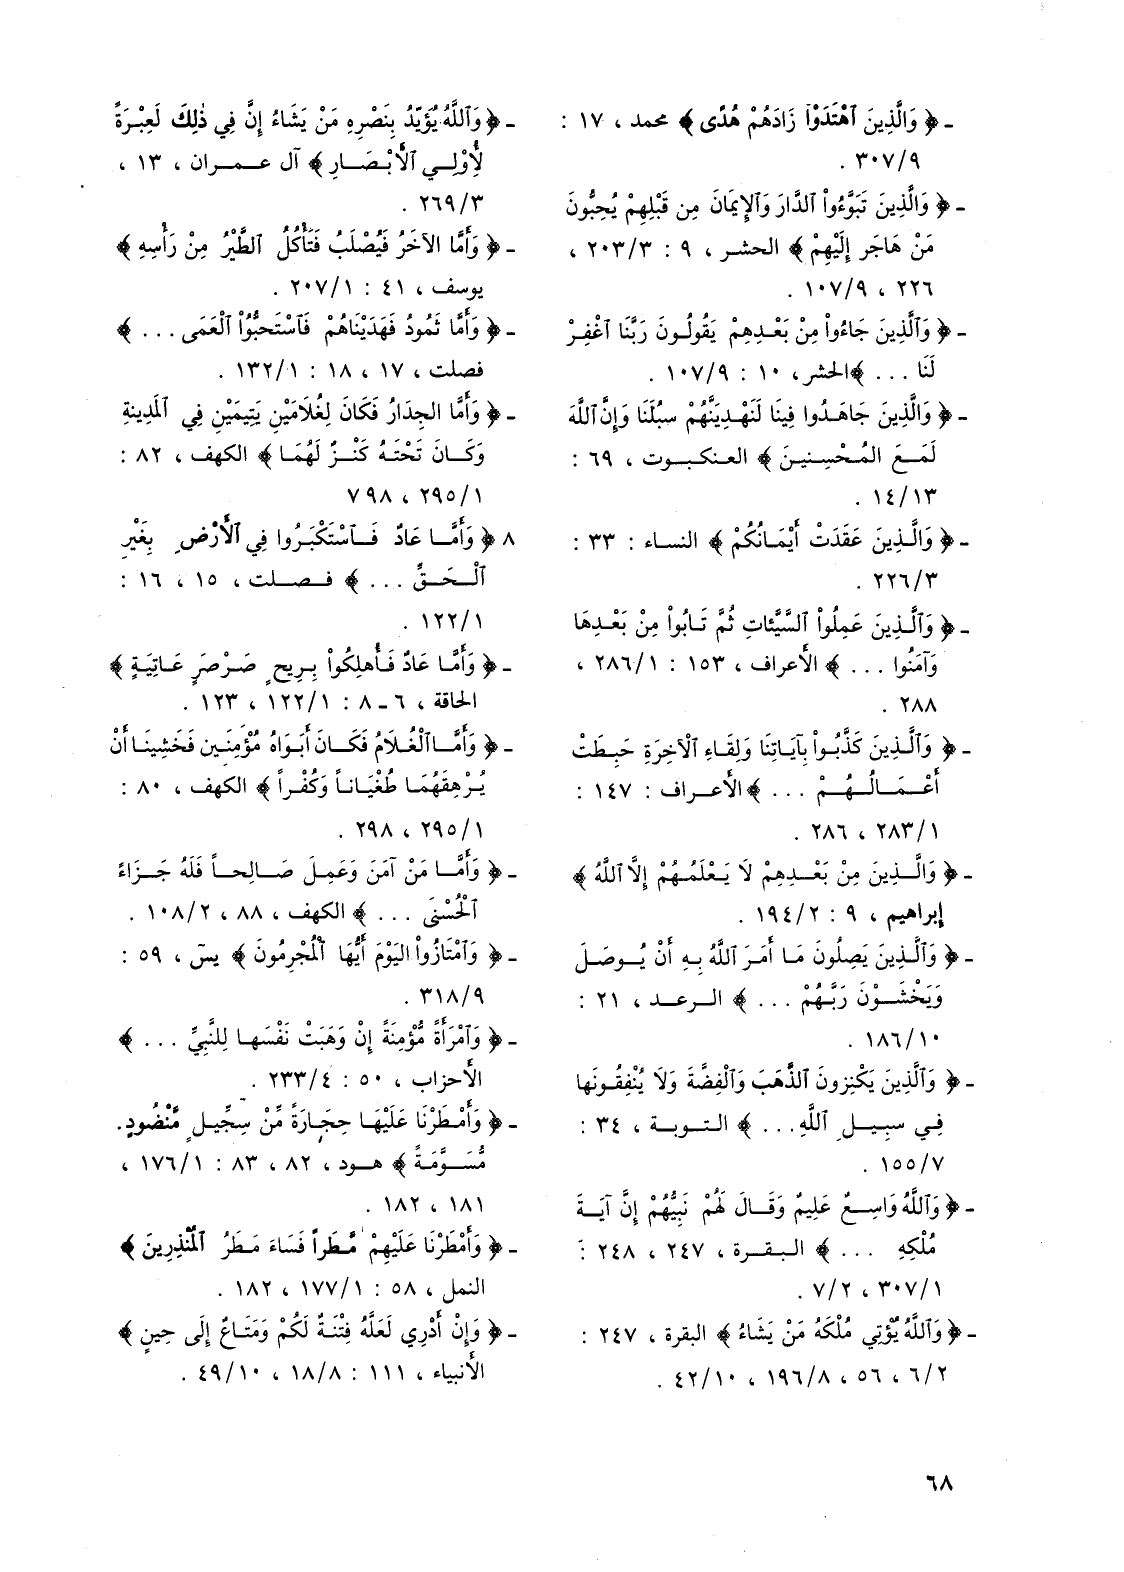 - ﴿ وَالَّذِينَ ٱهْتَدَوْاْ زَادَهُمْ هُدًى ﴾ محمد ، ١٧ :
٣٠٧/٩ .
- ﴿ وَالَّذِينَ تَبَوَّءُواْ ٱلدَّارَ وَٱلإِيمَانَ مِن قَبْلِهِمْ يُحِبُّونَ
مَنْ هَاجَر إِلَيْهِمْ ﴾ الحشر ، ٩ : ٢٠٣/٣ ،
٢٢٦ ، ١٠٧/٩ .
- ﴿ وَٱلَّذِينَ جَاءُواْ مِنْ بَعْدِهِمْ يَقُولُونَ رَبَّنَا ٱغْفِرْ
لَنَا ... ﴾الحشر، ١٠ : ١٠٧/٩ .
- ﴿ وَالَّذِينَ جَاهَدُوا فِينَا لَنَهْدِيَنَّهُمْ سبُلَنَا وَإِنَّ ٱللَّهَ
لَمَعَ المُحْسِنِينَ ﴾ العنكبوت ، ٦٩ :
١٤/١٣ .
- ﴿ وَالَّذِينَ عَقَدَتْ أَيْمَانُكُمْ ﴾ النساء : ٣٣ :
٢٢٦/٣ .
- ﴿ وَالَّذِينَ عَمِلُواْ ٱلسَّيِّئَاتِ ثُمَّ تَابُواْ مِنْ بَعْدِهَا
وَآمَنُوا ... ﴾ الأعراف ، ١٥٣ : ٢٨٦/١ ،
٢٨٨ .
- ﴿ وَٱلَّذِينَ كَذَّبُواْ بِآيَاتِنَا وَلِقَاءِ ٱلْآخِرَةِ حَبِطَتْ
أَعْمَالُهُمْ ... ﴾الأعراف : ١٤٧ :
٢٨٣/١ ، ٢٨٦ .
- ﴿ وَالَّذِينَ مِنْ بَعْدِهِمْ لَا يَعْلَمُهُمْ إِلَّا ٱللَّهُ ﴾
إبراهيم ، ٩ : ١٩٤/٢ .
- ﴿ وَٱلَّذِينَ يَصِلُونَ مَا أَمَرَ ٱللَّهُ بِهِ أَنْ يُوصَلَ
وَيَخْشَوْنَ رَبَّهُمْ ... ﴾ الرعد ، ٢١ :
١٨٦/١٠ .
- ﴿ وَٱلَّذِينَ يَكْنِزونَ ٱلذَّهَبَ وَٱلْفِضَّةَ وَلَا يُنْفِقُونَها
فِي سبِيلِ ٱللَّهِ... ﴾ التوبة ، ٣٤ :
١٥٥/٧ .
- ﴿ وَٱللَّهُ وَاسِعٌ عَلِيمٌ وَقَالَ لَهُمْ نَبِيُّهُمْ إِنَّ آيَةَ
مُلْكِهِ ... ﴾ البقرة ، ٢٤٧ ، ٢٤٨ :
٣٠٧/١ ، ٧/٢ .
- ﴿ وَٱللَّهُ يُؤْتِي مُلْكَهُ مَنْ يَشَاءُ ﴾ البقرة ، ٢٤٧ :
٦/٢ ، ٥٦ ، ١٩٦/٨ ، ٤٢/١٠ .
- ﴿ وَٱللَّهُ يُؤَيِّدُ بِنَصْرِهِ مَنْ يَشَاءُ إِنَّ فِي ذٰلِكَ لَعِبْرَةً
لِأُوْلِي ٱلأَبْصَارِ ﴾ آل عمران ، ١٣ ،
٢٦٩/٣ .
- ﴿ وَأَمَّا الآخَرُ فَيُصْلَبُ فَتَأْكُلُ ٱلطَّيْرُ مِنْ رَأْسِهِ ﴾
يوسف ، ٤١ : ٢٠٧/١ .
- ﴿ وَأَمَّا ثَمُودُ فَهَدَيْنَاهُمْ فَٱسْتَحَبُّوُاْ ٱلْعَمَى ... ﴾
فصلت ، ١٧ ، ١٨ : ١٣٢/١ .
- ﴿ وَأَمَّا الجِدَارُ فَكَانَ لِغُلَامَيْنِ يَتِيمَيْنِ فِي ٱلمَدِينَةِ
وَكَانَ تَحْتَهُ كَنْزٌ لَهُمَا ﴾ الكهف ، ٨٢ :
٢٩٥/١ ، ٧٩٨
٨ ﴿ وَأَمَّا عَادٌ فَٱسْتَكْبَرُوا فِي ٱلأَرْضِ بِغَيْرِ
ٱلْحَقِّ ... ﴾ فصلت ، ١٥ ، ١٦ :
١٢٢/١ .
- ﴿ وَأَمَّا عَادٌ فَأُهلِكُواْ بِرِيحٍ صَرْصَرٍ عَاتِيَةٍ ﴾
الحاقة ، ٦ - ٨ : ١٢٢/١ ، ١٢٣ .
- ﴿ وَأَمَّا ٱلْغُلَامُ فَكَانَ أَبَوَاهُ مُؤْمِنَيـن فَخَشِينَا أَنْ
يُرْهِقَهُمَا طُغْيَاناً وَكُفْراً ﴾ الكهف ، ٨٠ :
٢٩٥/١ ، ٢٩٨ .
- ﴿ وَأَمَّا مَنْ آمَنَ وَعَمِلَ صَالِحاً فَلَهُ جَزَاءً
ٱلْحُسْنَى ... ﴾ الكهف ، ٨٨ ، ١٠٨/٢ .
- ﴿ وَٱمْتَازُواْ اليَوْمَ أَيُّهَا ٱلْمُجْرِمُونَ ﴾ يسٓ ، ٥٩ :
٣١٨/٩ .
- ﴿ وَٱمْرَأَةً مُّؤْمِنَةً إِنْ وَهَبَتْ نَفْسَها لِلنَّبِيِّ ... ﴾
الأحزاب ، ٥٠ : ٢٣٣/٤ .
- ﴿ وَأَمْطَرْنا عَلَيْهَا حِجَارَةً مِّنْ سِجِّيلٍ مَّنْضُودٍ.
مُّسَوَّمَةً ﴾ هود ، ٨٢ ، ٨٣ : ١٧٦/١ ،
١٨١ ، ١٨٢ .
- ﴿ وَأَمْطَرْنَا عَلَيْهِمْ مَّطَراً فَسَاءَ مَطَرُ ٱلمُنْذِرِينَ ﴾
النمل ، ٥٨ : ١٧٧/١ ، ١٨٢ .
- ﴿ وَإِنْ أَدْرِي لَعَلَّهُ فِتْنَةٌ لَكُمْ وَمَتَاعٌ إِلَى حِينٍ ﴾
الأنبياء ، ١١١ : ١٨/٨ ، ٤٩/١٠ .
٦٨